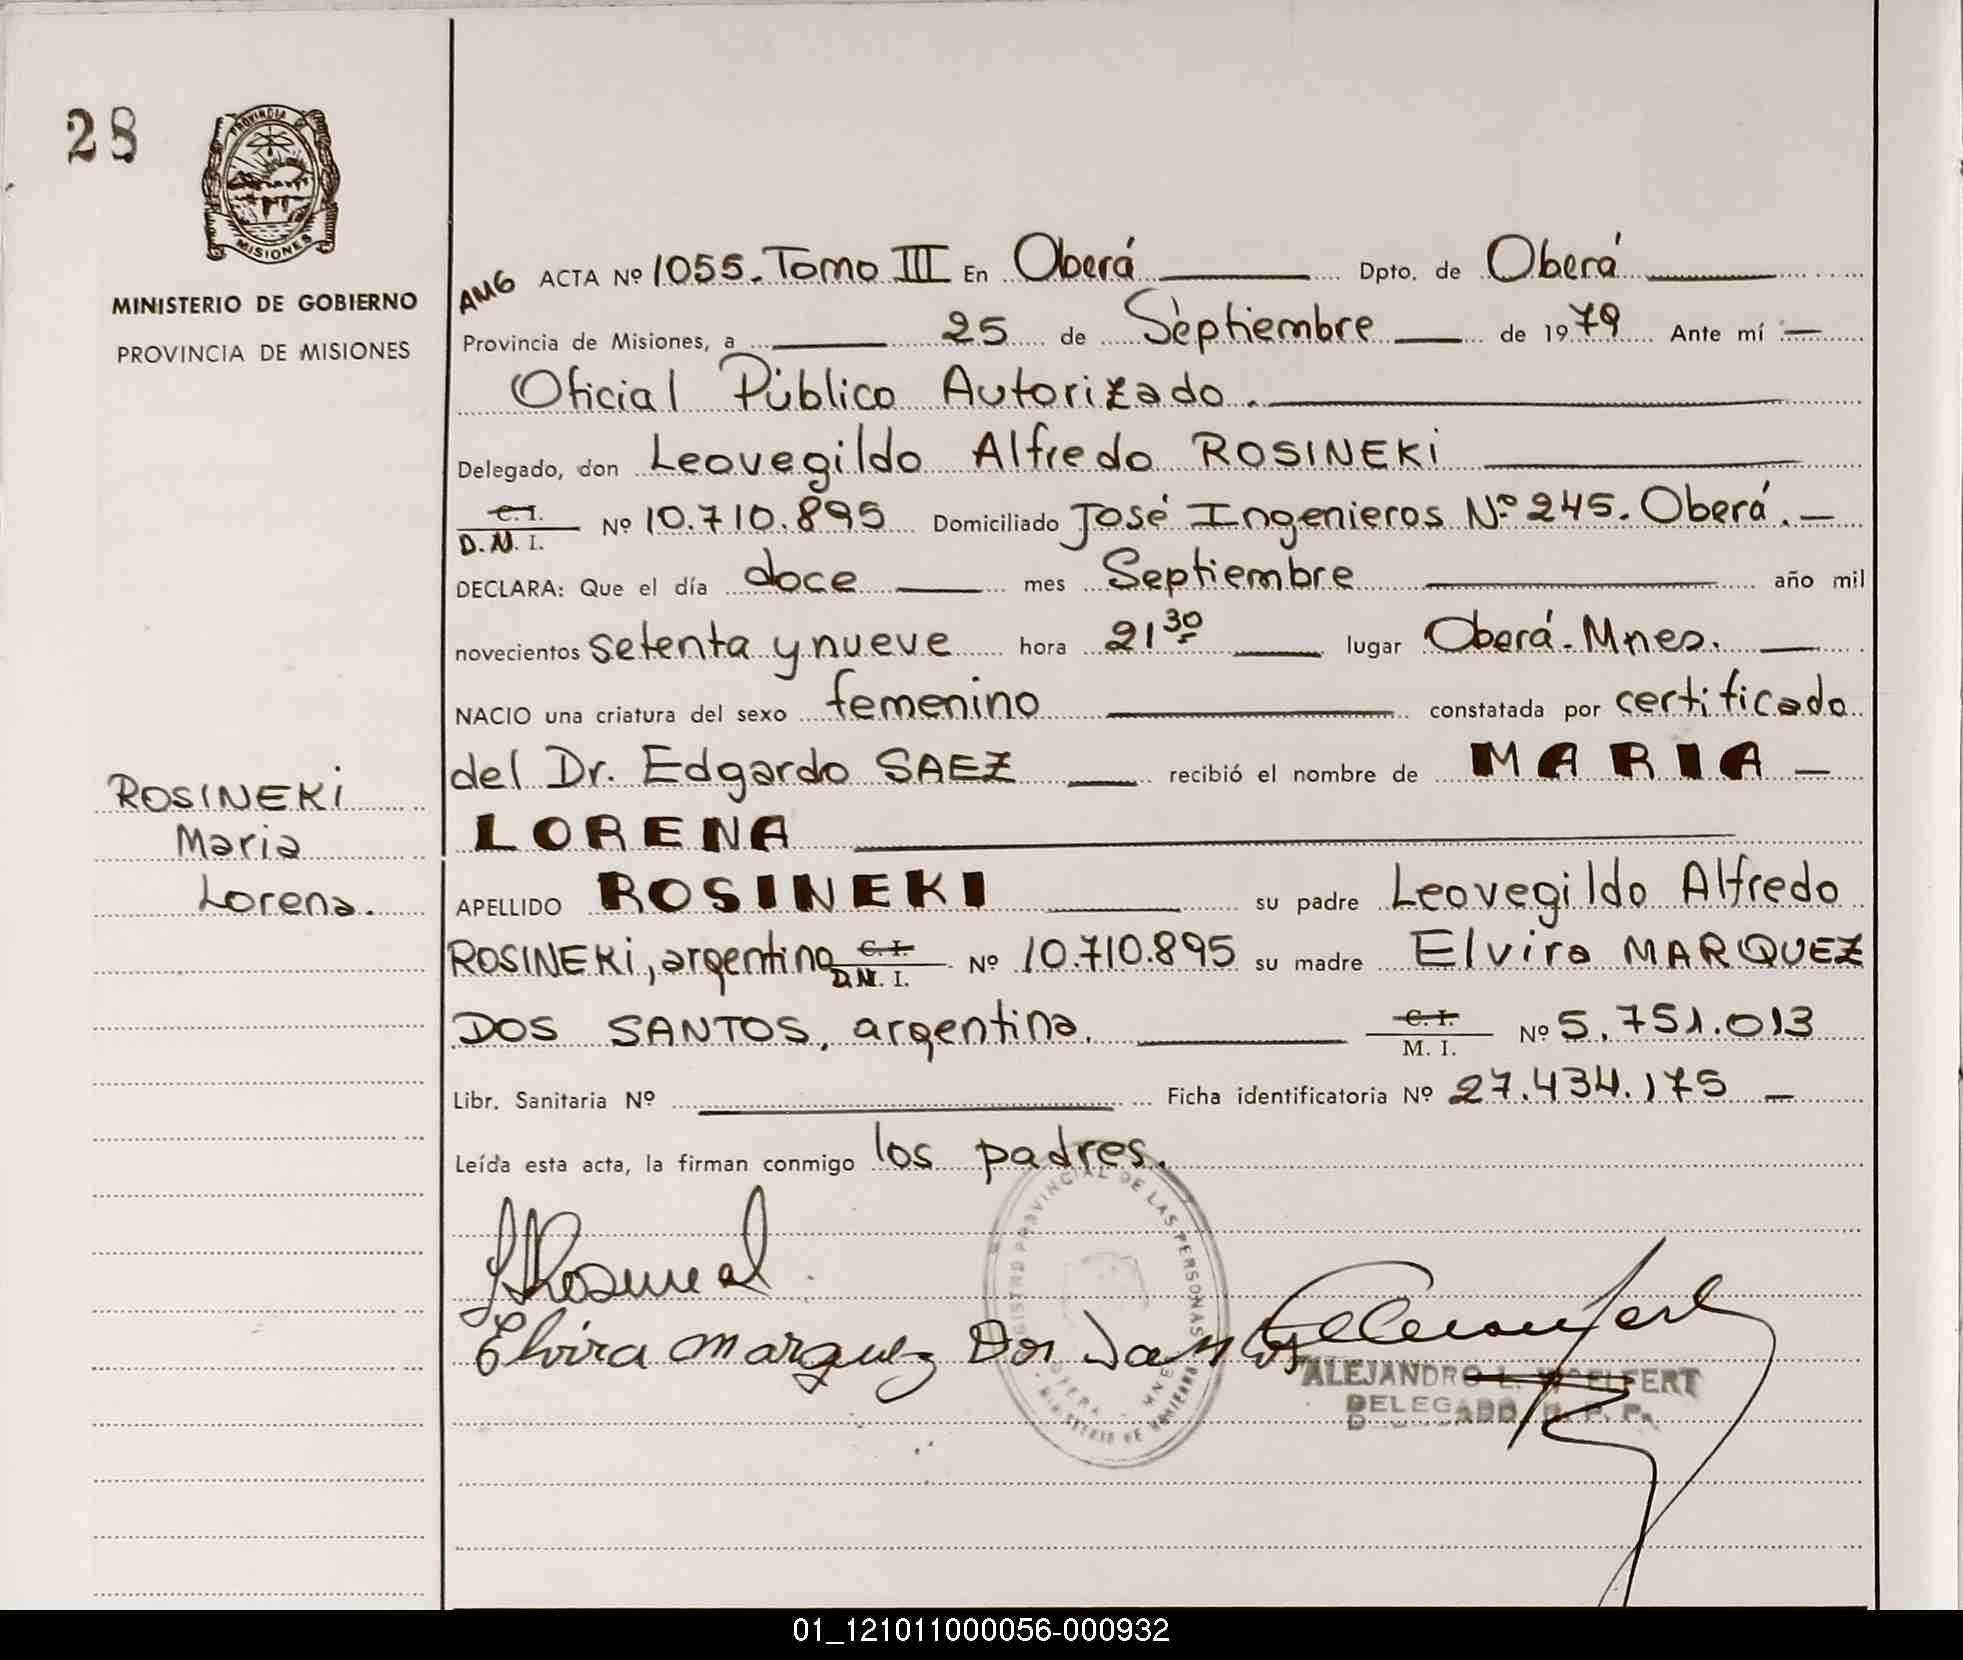 28
PROVINCIA DE
MISIONES
MINISTERIO DE GOBIERNO
PROVINCIA DE MISIONES
AMG ACTA Nº 1055. Tomo III En Oberá Dpto. de Oberá
Provincia de Misiones, a 25 de Septiembre de 1979 Ante mí
Oficial Público Autorizado.
Delegado, don Leovegildo Alfredo ROSINEKi
C. I.
D.N.I. Nº 10.710.895 Domiciliado José Ingenieros Nº 245. Oberá.
DECLARA: Que el día doce mes Septiembre año mil
novecientos setenta y nueve hora 21 30 lugar Oberá. Mnes.
NACIO una criatura del sexo femenino constatada por certificado
del Dr. Edgardo SAEZ recibió el nombre de MARIA
LORENA
ROSINEKi
Maria
Lorena.
APELLIDO ROSINEKI su padre Leovegildo Alfredo
ROSINEKi, argentino C. I. D.N.I. Nº 10.710.895 su madre Elvira MARQUEZ
DOS SANTOS, argentina. C. I. M. I. Nº 5.751.013
Libr. Sanitaria Nº Ficha identificatoria Nº 27.434.175
Leída esta acta, la firman conmigo los padres.
REGISTRO PROVINCIAL DE LAS PERSONAS
OBERA - MNES
MINISTERIO DE GOBIERNO
Elvira Marquez Dos Santos
ALEJANDRO L. WOELFERT
DELEGADO R. P. P.
01_121011000056-000932